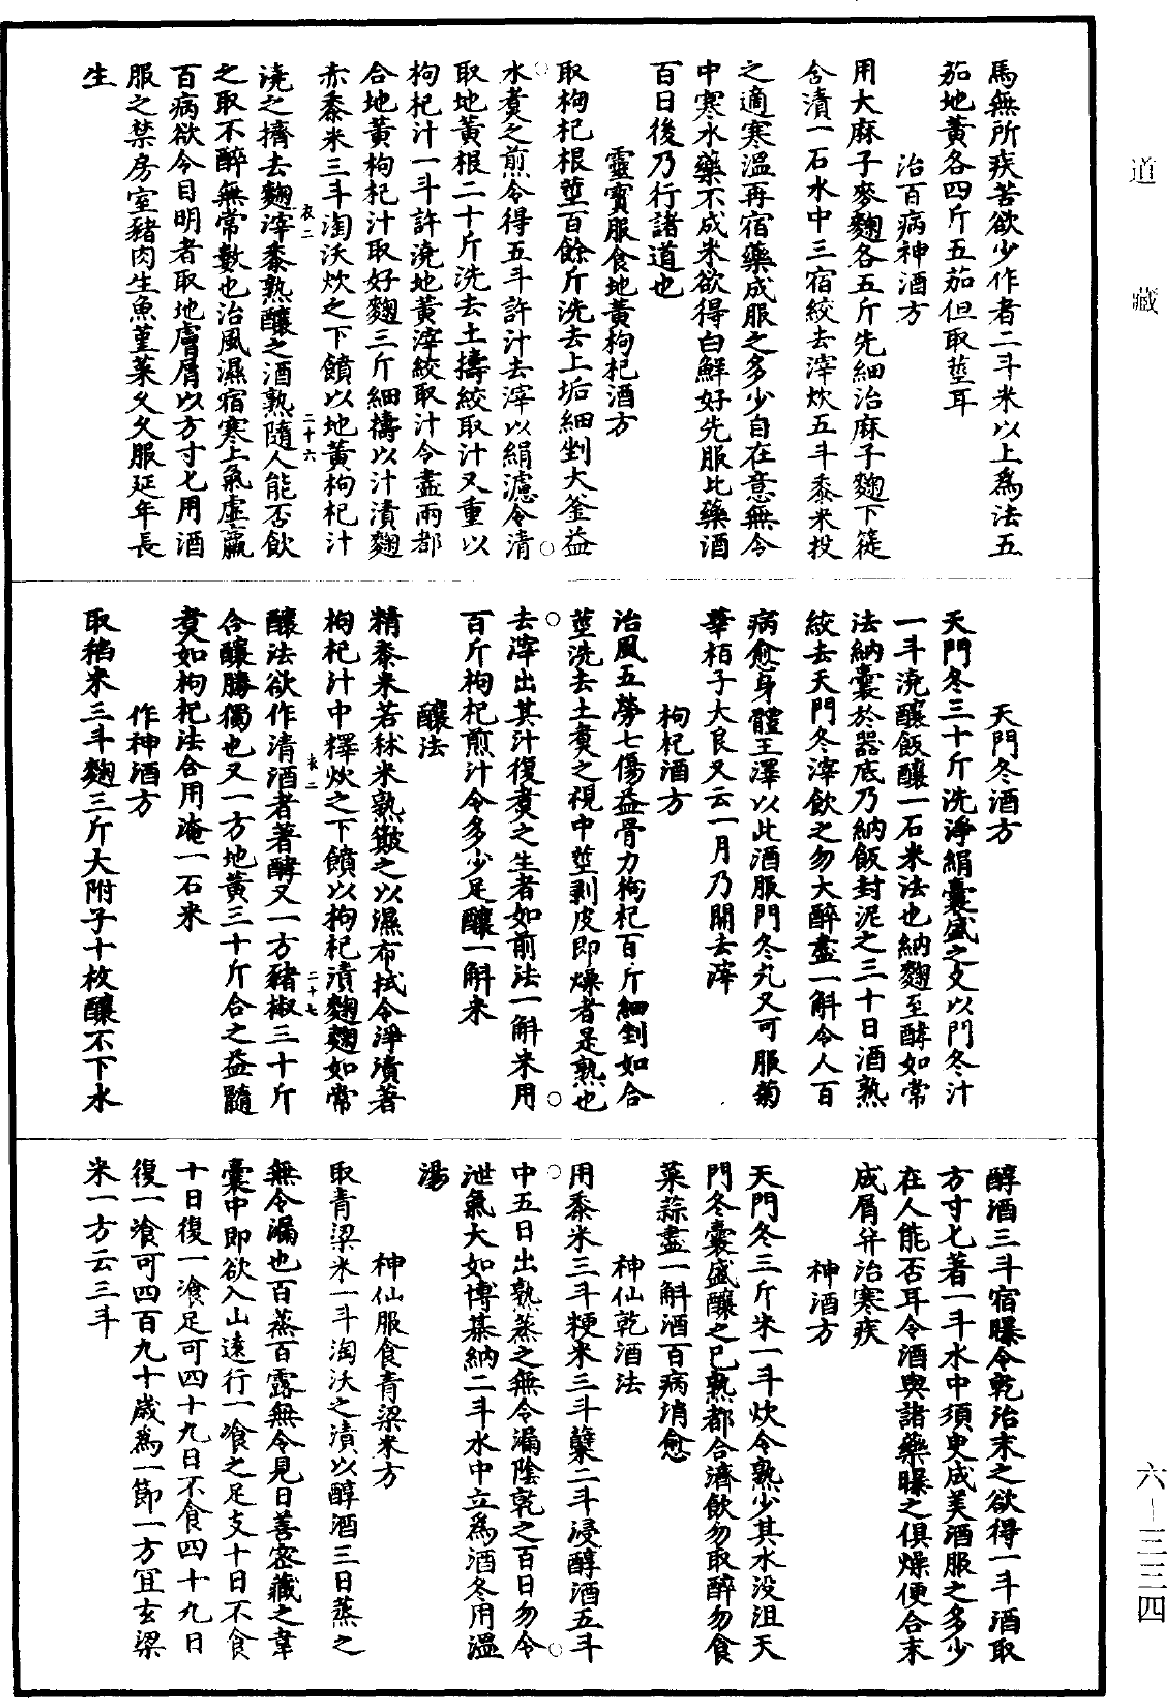 道藏
馬無所疾苦欲少作者二斗米以上爲法五
茄地黃各四斤五茄但取莖耳
治百病神酒方
用大麻子麥麴各五斤先細治麻子麴下簁
合漬一石水中三宿絞去滓炊五斗黍米投
之適寒溫再宿藥成服之多少自在意無令
中寒水藥不成米欲得白鮮好先服此藥酒
百日後乃行諸道也
靈寶服食地黃枸杞酒方
取枸杞根莖百餘斤洗去上垢細剉大釜益
水煮之煎令得五斗許汁去滓以絹濾令清
取地黃根二十斤洗去土擣絞取汁又重以
枸杞汁一斗許澆地黃滓絞取汁令盡兩都
合地黃枸杞汁取好麴三斤細擣以汁漬麴
赤黍米三斗淘沃炊之下饙以地黃枸杞汁
衣二
二十六
澆之擠去麴滓黍熟釀之酒熟隨人能否飲
之取不醉無常數也治風濕宿寒上氣虛羸
百病欲令目明者取地膚屑以方寸匕用酒
服之禁房室豬肉生魚堇菜久久服延年長
生
天門冬酒方
天門冬三十斤洗淨絹囊盛之又以門冬汁
一斗澆釀飯釀一石米法也納麴至酵如常
法納囊於器底乃納飯封泥之三十日酒熟
絞去天門冬滓飲之勿大醉盡一斛令人百
病愈身體王澤以此酒服門冬丸又可服菊
華栢子大良又云一月乃開去滓
枸杞酒方
治風五勞七傷益骨力枸杞百斤細剉如合
莖洗去土煑之視中莖剥皮即燥者是熟也
去滓出其汁復煑之生者如前法一斛米用
百斤枸杞煎汁令多少足釀一斛米
釀法
精黍米若秫米熟簸之以濕布拭令淨漬著
枸杞汁中釋炊之下饙以枸杞漬麴麴如常
衣二
二十七
釀法欲作清酒者著酵又一方豬椒三十斤
合釀勝獨也又一方地黃三十斤合之益髓
煮如枸杞法合用淹一石米
作神酒方
取稻米三斗麴三斤大附子十枚釀不下水
醇酒三斗宿曝令乾治末之欲得一斗酒取
方寸匕著一斗水中須臾成美酒服之多少
在人能否耳令酒與諸藥曝之俱燥便合末
成屑并治寒疾
神酒方
天門冬三斤米一斗炊令熟少其水没沮天
門冬囊盛釀之已熟都合濟飲勿取醉勿食
菜蒜盡一斛酒百病消愈
神仙乾酒法
用黍米三斗粳米三斗糵二斗浸醇酒五斗
中五日出熟蒸之無令漏陰乾之百日勿令
泄氣大如博棊納二斗水中立爲酒冬用溫
湯
神仙服食青粱米方
取青粱米一斗淘沃之漬以醇酒三日蒸之
無令漏也百蒸百露無令見日善密藏之韋
囊中即欲入山遠行一飡之足支十日不食
十日復一飡足可四十九日不食四十九日
復一飡可四百九十歲爲一節一方冝玄粱
米一方云三斗
六-三三四